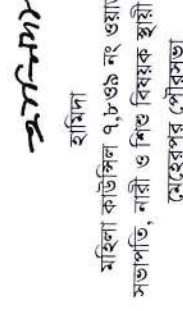 হামিদা
হামিদা
মহিলা কাউন্সিল ৭,৮ও৯ নং ওয়া
সভাপতি, নারী ও শিশু বিষয়ক স্থায়ী
মেহেরপর পৌরসভা